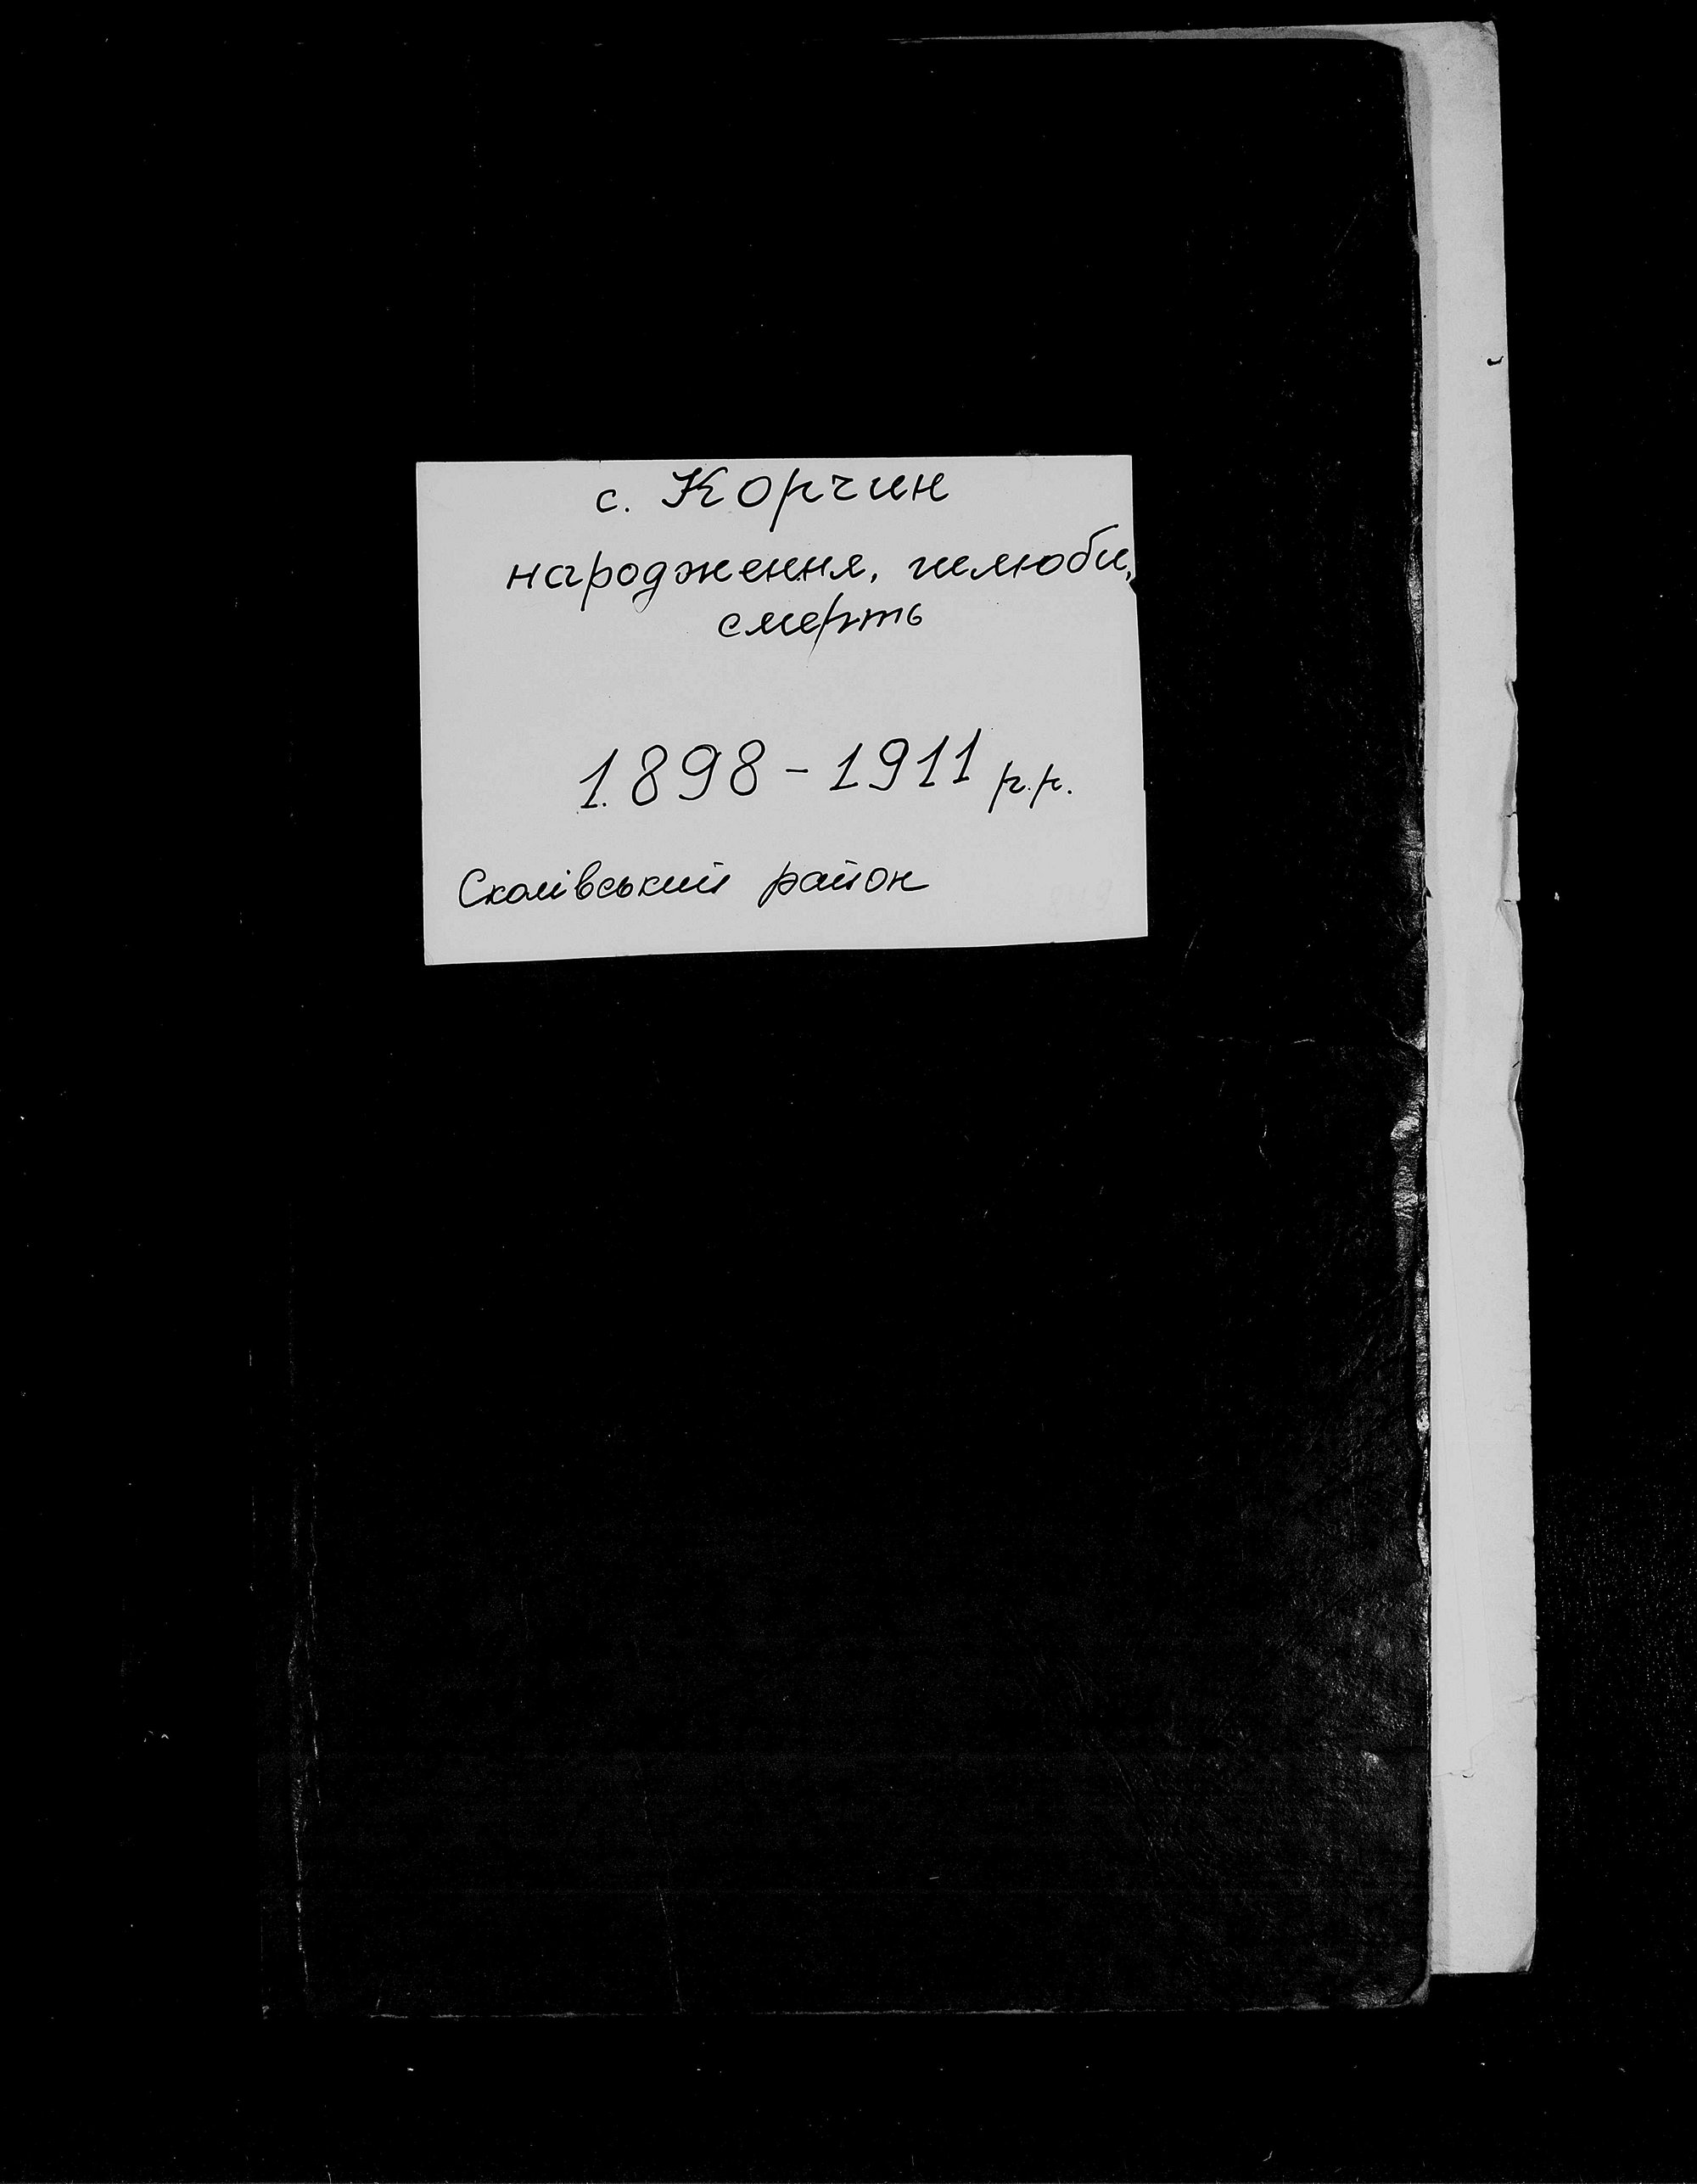 с. Корчин
народження, шлюби,
смерть
1898 - 1911 р.р.
Сколівський район